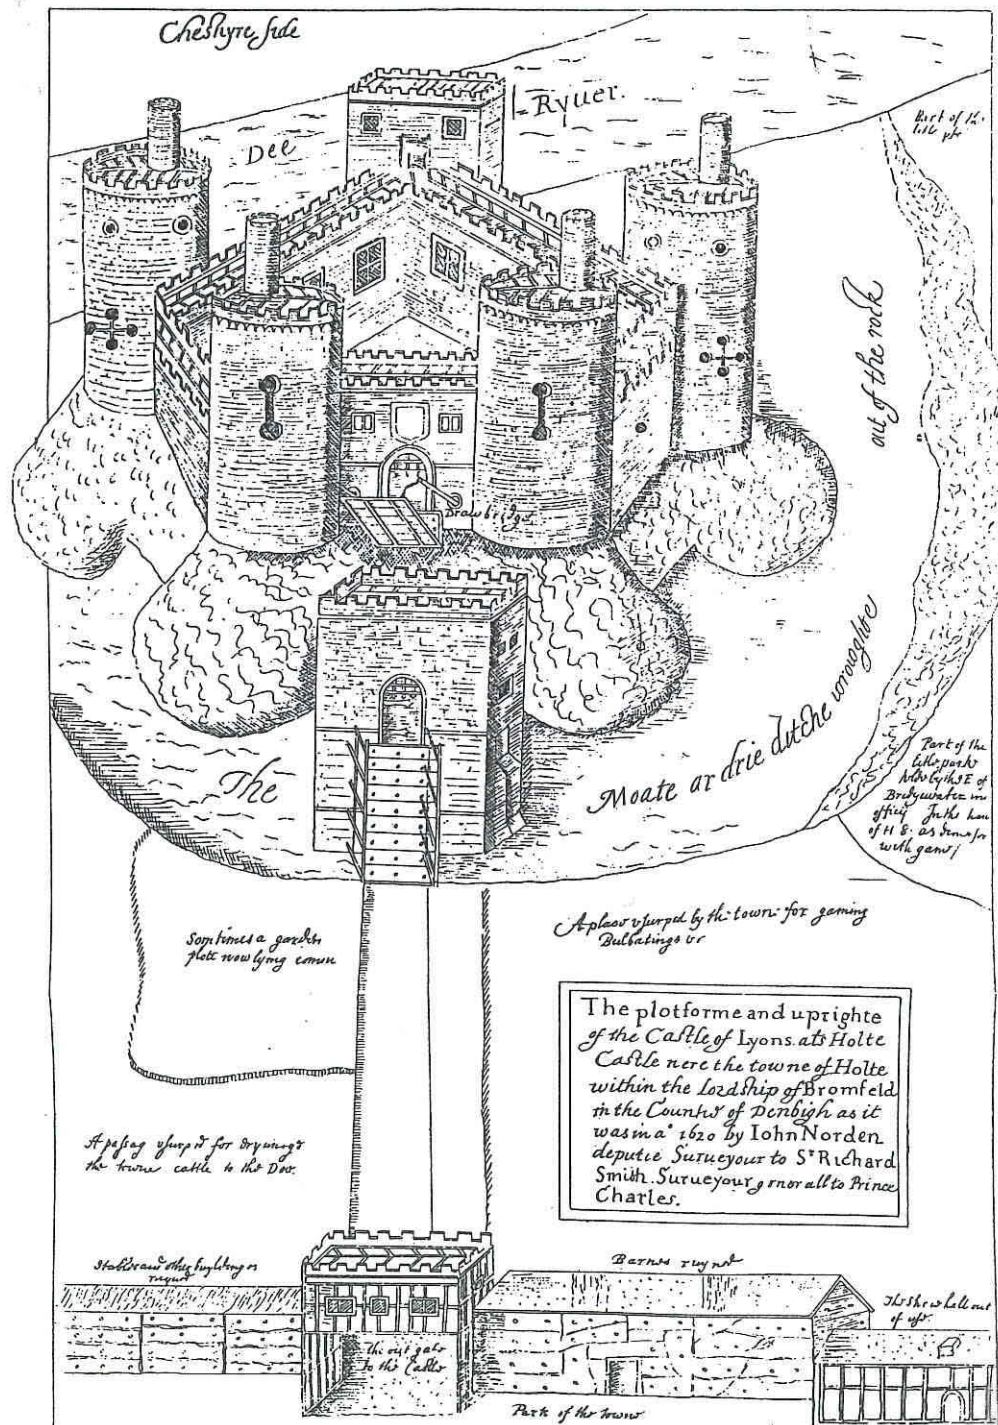 Cheshyre side
Ryuer.
Dee
Part of the
litle
out of the rock
Drawbridge
The
Moate or drie ditche wroughte
Part of the
litle parke
held by the E of
Bridgwater in
of H 8. as
with game
Sometimes a garden
plott now lying comon
A place vsurped by the town for gaming
Bulbatings &c
The plotforme and uprighte
of the Castle of Lyons. ats Holte
Castle nere the towne of Holte
within the Lordship of Bromfeld
in the Countie of Denbigh as it
was in a° 1620 by Iohn Norden
deputie Surueyour to Sr Richard
Smith. Surueyour generall to Prince
Charles.
A passag vsurped for dryuinge
the towne cattle to the Dee.
Stables and other buyldings
ruyned
Barnes ruyned
The Shire hall out
of use
The out gate
to the Castle
Park of the towne